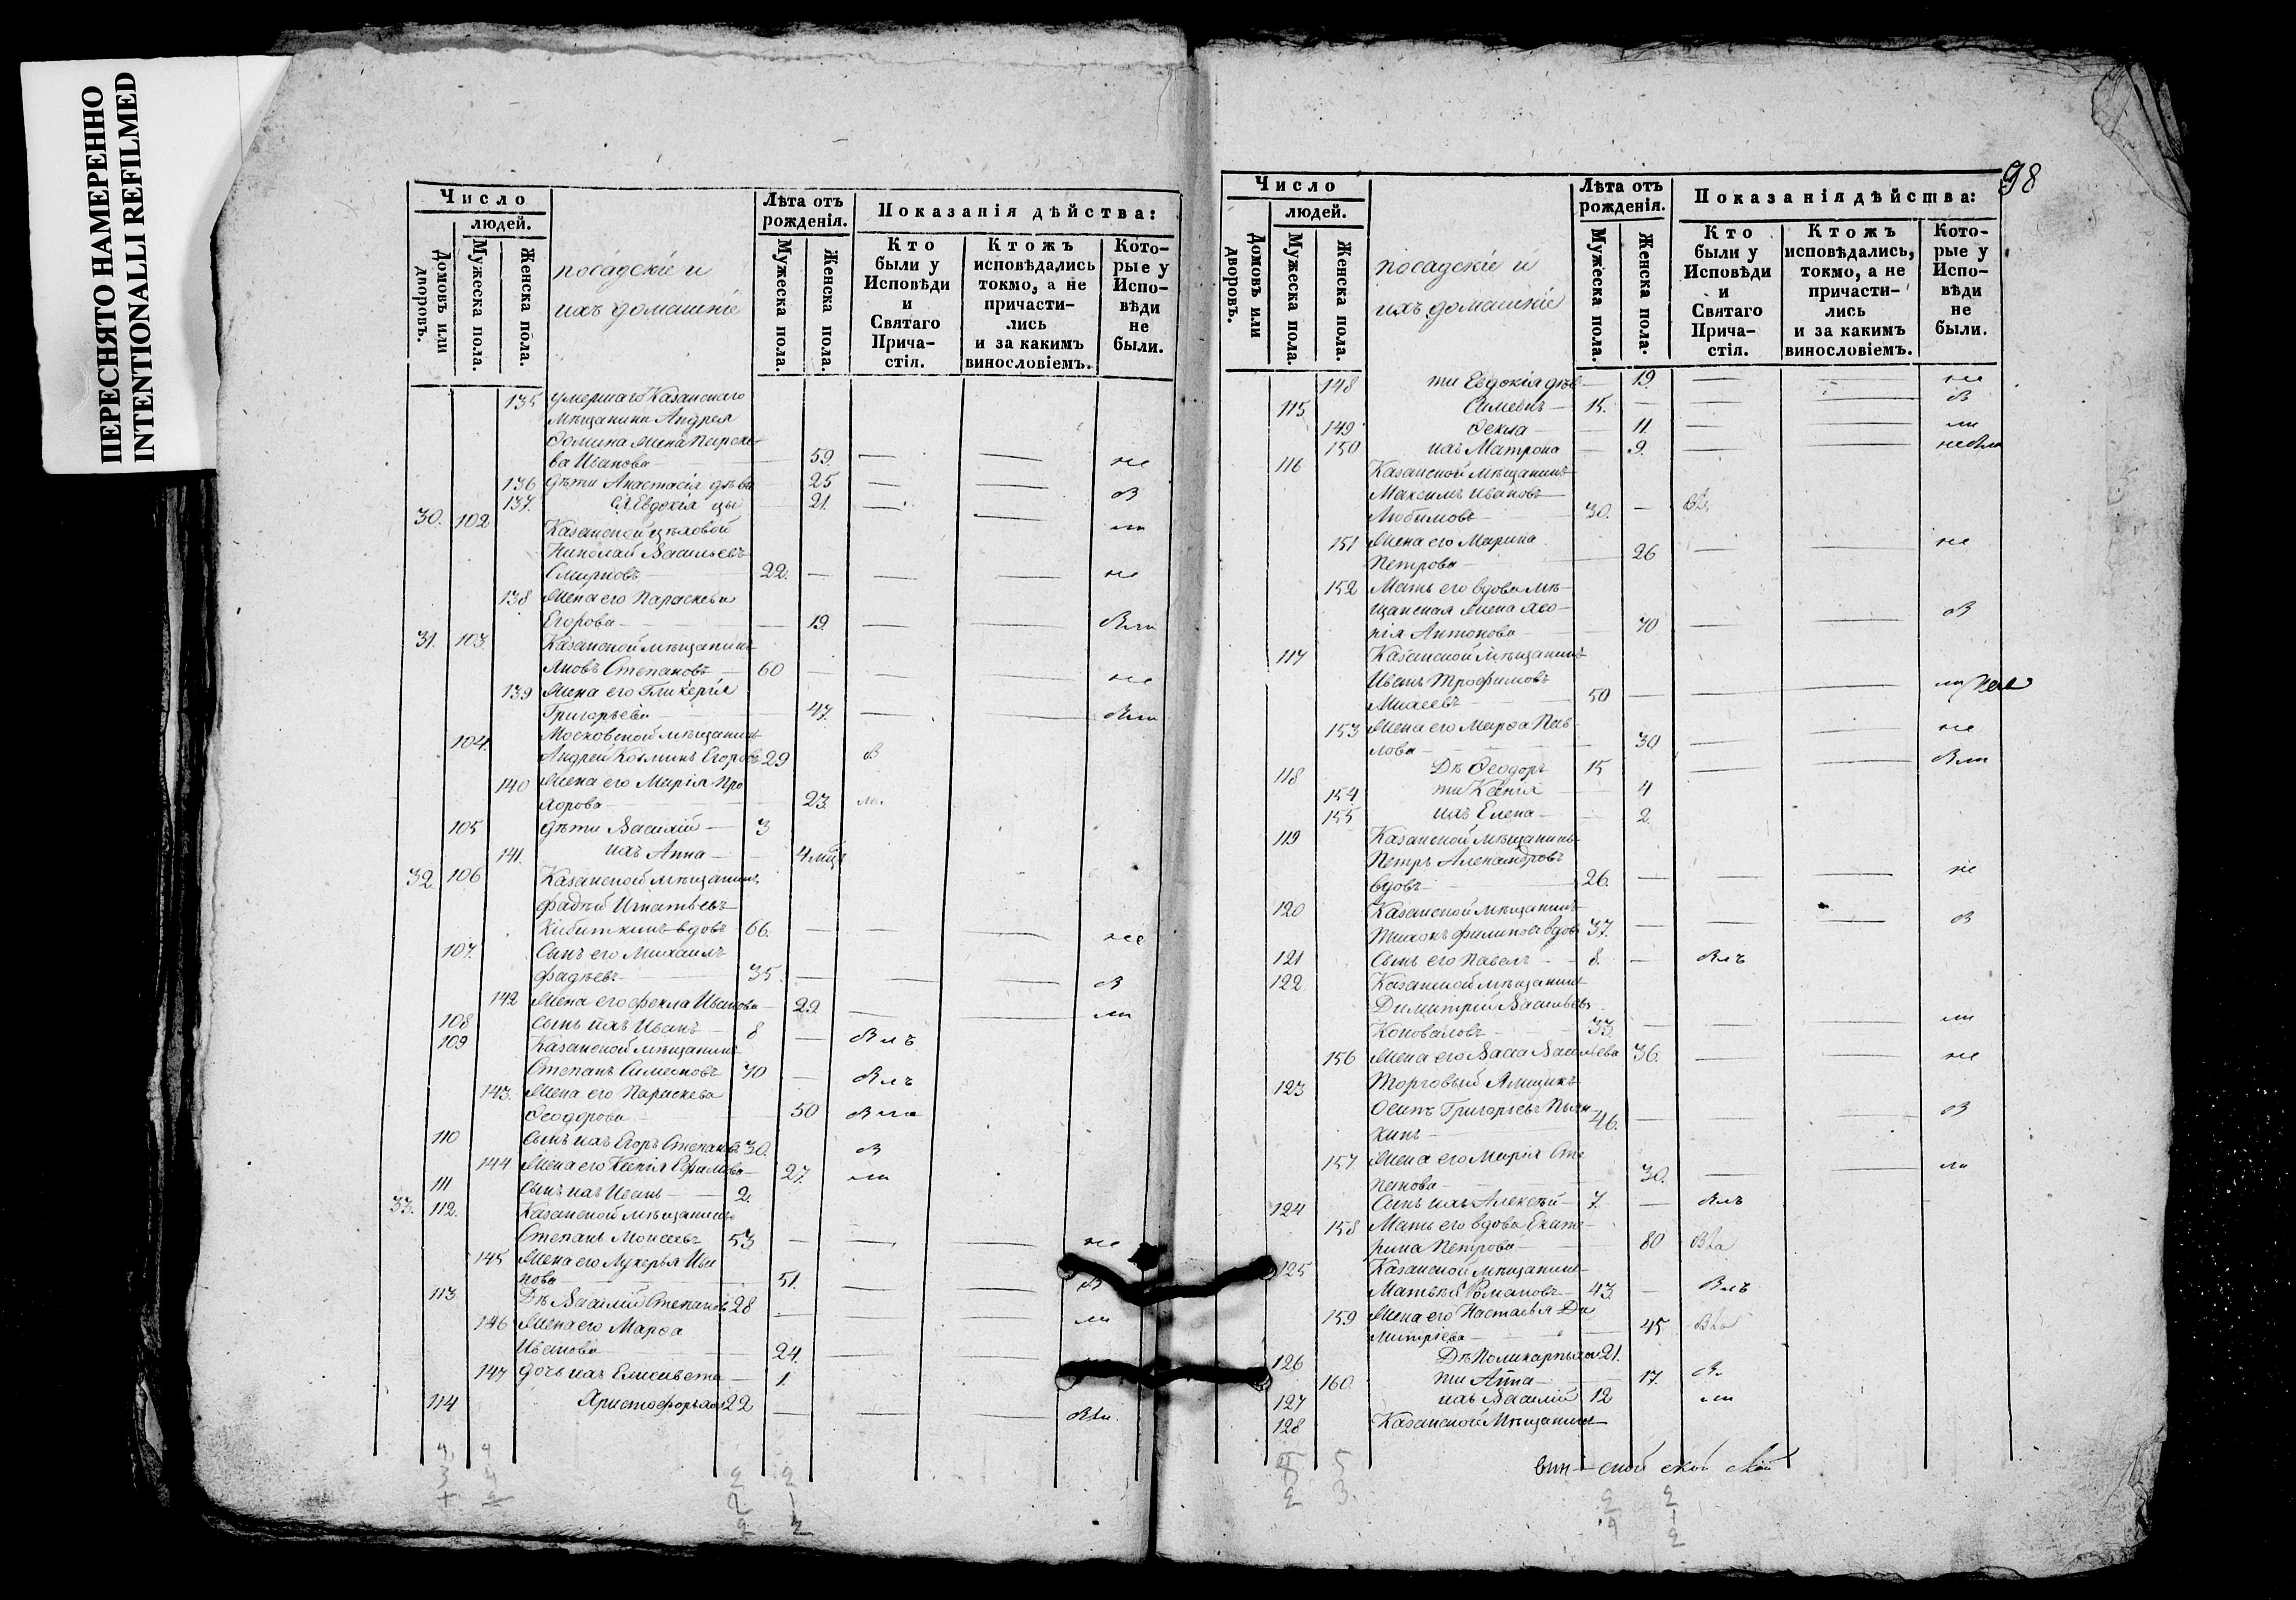 ПЕРЕСНЯТО НАМЕРЕННО
INTENTIONALLI REFILMED
Число
людей.
Домовъ или дворовъ.
Мужеска пола.
Женска пола.
посадскіе и
ихъ домашніе
Лѣта отъ рожденія.
Мужеска пола.
Женска пола.
Показанія дѣйства:
Кто были у Исповѣди и Святаго Прича-стія.
Ктожъ исповѣдались токмо, а не причасти-лись и за какимъ винословіемъ.
Кото-рые у Испо-вѣди не были.
135 умершаго Казанскаго
мѣщанина Андрея
Ѳомина жена Параске-
ва Иванова — 59. — — не
136 дѣти Анастасія 25 — — В
137. Евдокія 21. — —
30. 102 Казанской цѣховой ли
Николай Васильевъ
Смирновъ — 22. — — — не
138 Жена его Параскева
Егорова — 19. — — Вли
31. 103. Казанской мѣщанинъ
Яковъ Степановъ — 60 — — — не
139 Жена его Гликерія
Григорьева 47. — — Вли
104. Московской мѣщанинъ
Андрей Козминъ Егоровъ 29 В
140 Жена его Марія Про
хорова — 23. ли
105 дѣти Василій — 3
141. ихъ Анна — 4 мѣц
32. 106 Казанской мѣщанинъ
Фадѣй Игнатьевъ
Кибиткинъ вдовъ 66. — — — не
107. Сынъ его Михаилъ
Фадѣевъ — 35. — — — В
142 Жена его Фекла Иванова — 29 — — ли
108 Сынъ ихъ Иванъ — 8 — Влъ
109 Казанской мѣщанинъ
Степанъ Симеоновъ 70 — Влъ
143. Жена его Параскева
Ѳеодорова — 50 Вла
110 Сынъ ихъ Егоръ Степановъ 30. В
144 Жена его Ксенія Ефимова — 27. ли
111 Сынъ ихъ Иванъ — 2.
33. 112. Казанской мѣщанинъ
Степанъ Моисеевъ 53 — — — не
145 Жена его Лукерья Ива
нова — 51. — — В
113 Дѣ Василій Степановъ 28 — — — ли
146 Жена его Марѳа
Иванова 24. — —
147 дочь ихъ Елисавета — 1.
114 Христофоръ 22 — — — Вли.
98
Число
людей.
Домовъ или дворовъ.
Мужеска пола.
Женска пола.
посадскіе и
ихъ домашніе
Лѣта отъ рожденія.
Мужеска пола.
Женска пола.
Показанія дѣйства:
Кто были у Исповѣди и Святаго Прича-стія.
Ктожъ исповѣдались, токмо, а не причасти-лись и за какимъ винословіемъ.
Кото-рые у Испо-вѣди не были.
148 ти Евдокія дѣв — 19. — — не
115 Симеонъ — 15. — — — В
149 Ѳекла — 11. — — ли
150 ихъ Матрона — 9. — —
116 Казанской мѣщанинъ
Максимъ Ивановъ
Любимовъ — 30. —
151 Жена его Марина
Петрова — 26 — — не
152 Мать его вдова мѣ-
щанская жена
нія Антонова — 70 — — В
117 Казанской мѣщанинъ
Иванъ Трофимовъ
50 — — — ли
153 Жена его Марѳа Пав
лова — 30 — — не
118 Дѣ Ѳеодоръ 15 — — Вли
154 ти Ксенія — 4
155 ихъ Елена — 2.
119 Казанской мѣщанинъ
Петръ Александровъ
вдовъ — 26. — — — не
120 Казанской мѣщанинъ
Тихонъ Филиповъ вдовъ 37. — — — В
121 Сынъ его Павелъ — 8. — Влъ
122 Казанской мѣщанинъ
Димитрій Васильевъ
Коноваловъ — 33 — — — ли
156 Жена его Васса Васильева 36. — — не
123 Торговый Ямщикъ
Осипъ Григорьевъ
хинъ — 46. — — — В
157 Жена его Марія Сте
панова — 30. — — ли
124 Сынъ ихъ Алексѣй — 7. — Влъ
158 Мать его вдова Екате-
рина Петрова — 80 Вла
125 Казанской мѣщанинъ
Матвѣй Романовъ — 43. — Влъ
159 Жена его Настасья Ди
митріева — 45
126 Дѣ Поликарпъ 21.
160. ти Анна — 17. В
127 ихъ Василій 12 ли
128 Казанской Мѣщанинъ
ской ской